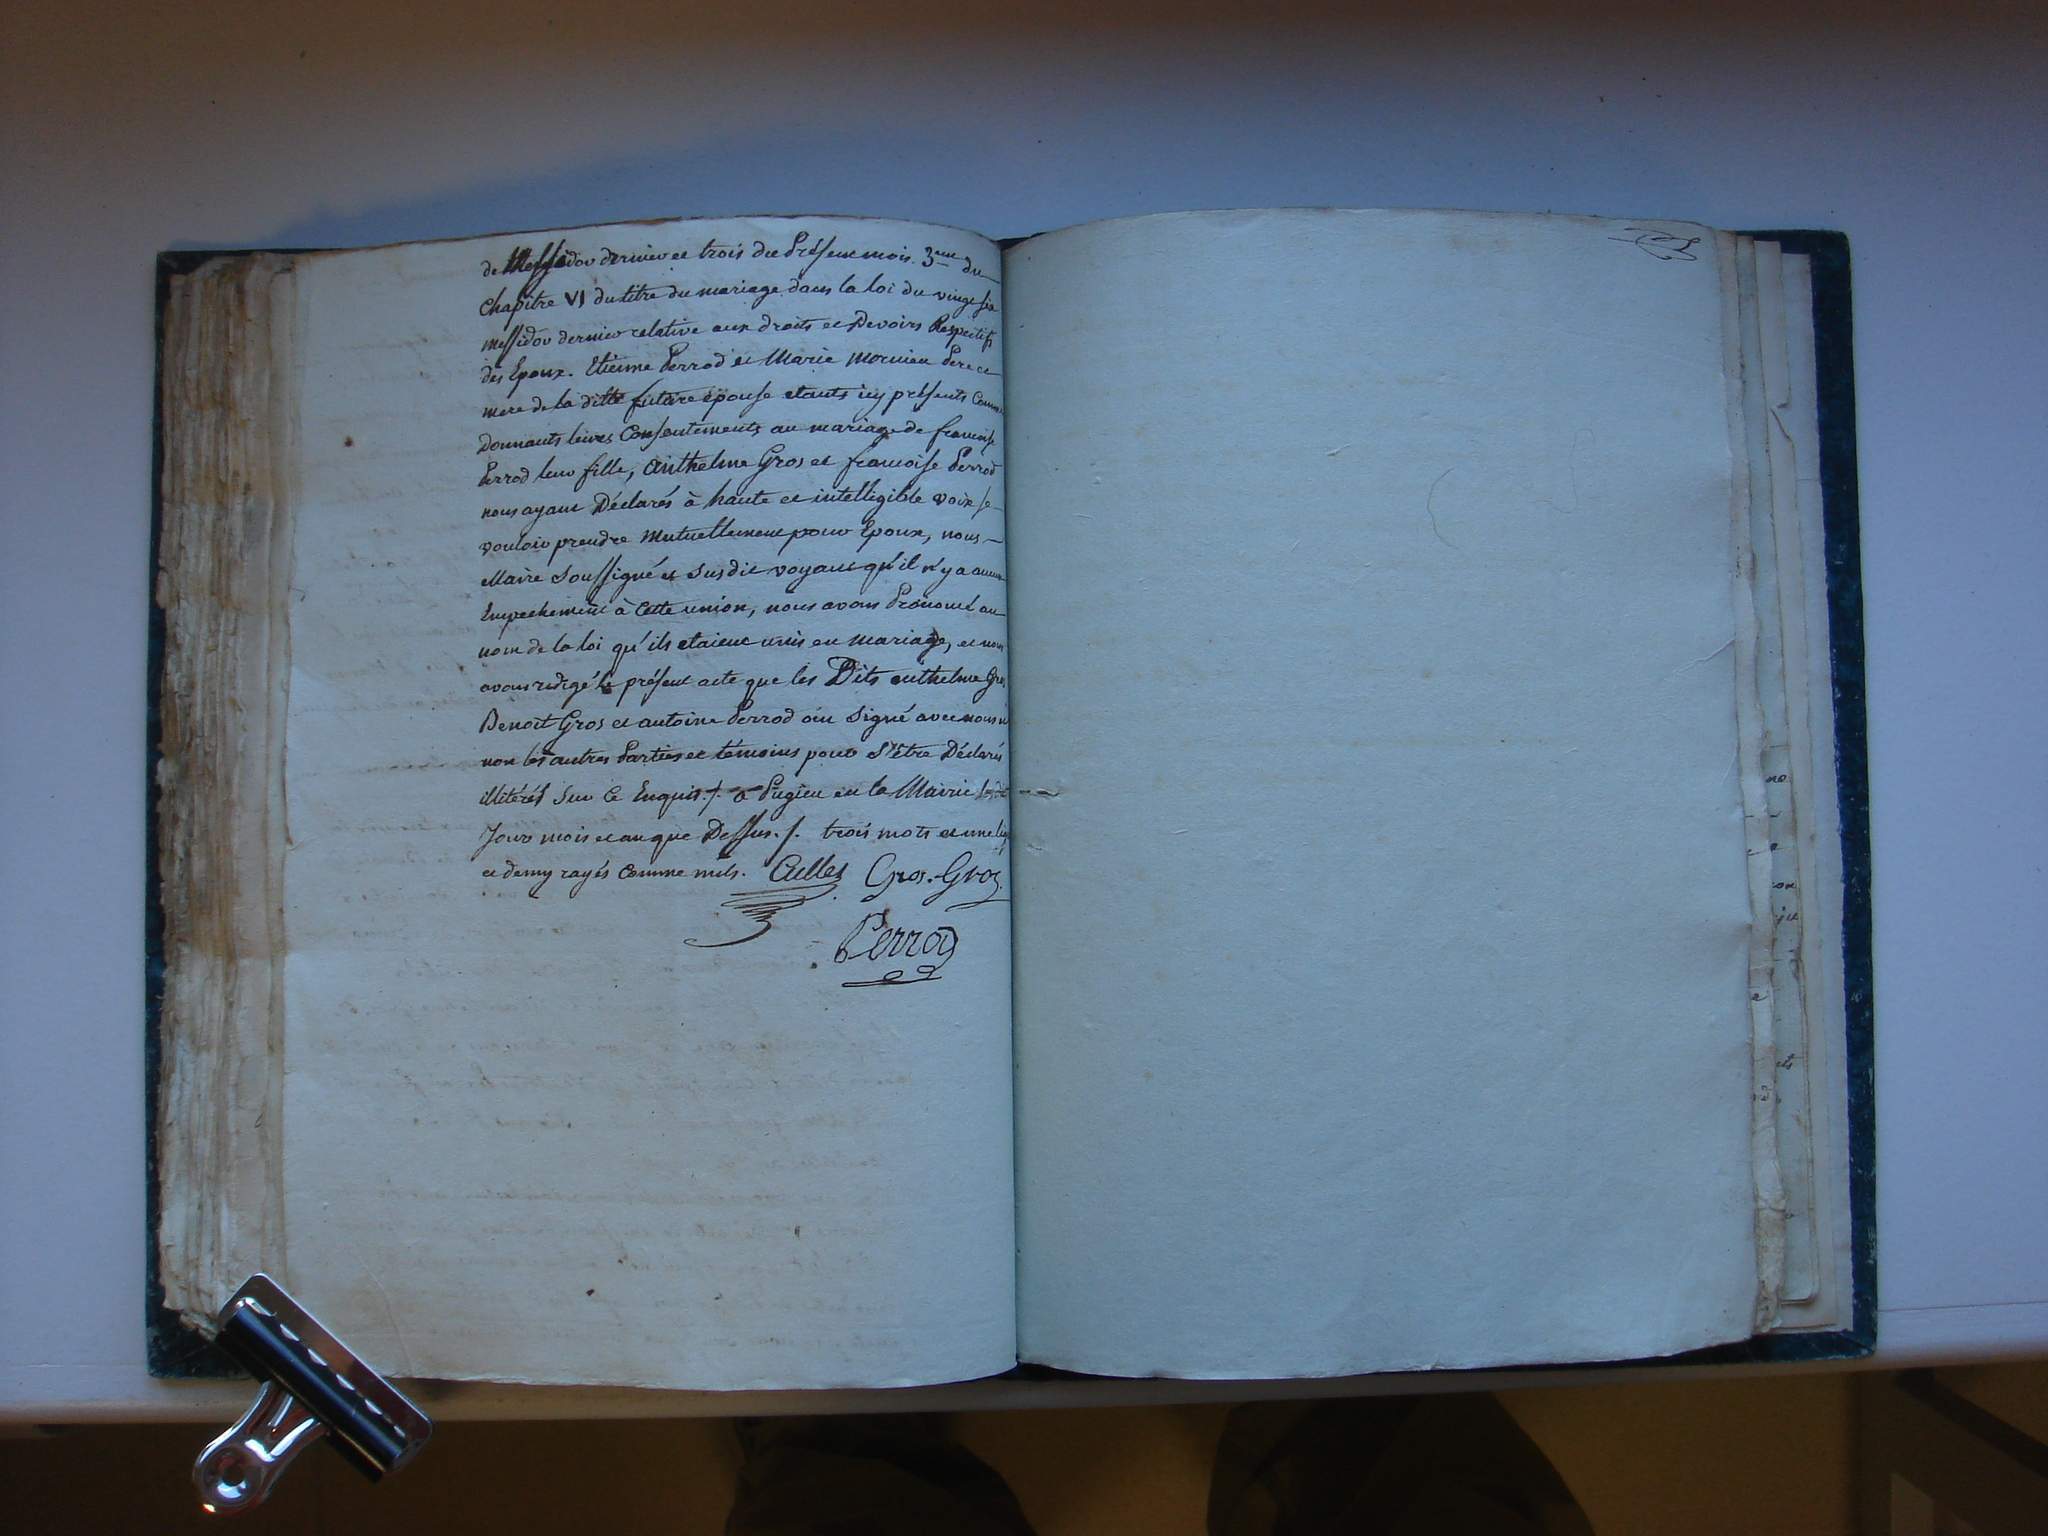 de Messidor dernier et trois du Présent mois. 3eme du
Chapitre VI du titre du mariage dans la loi du vingt six
messidor dernier relative aux droits et Devoirs Respectifs
des Epoux. Etienne Perrod et Marie Mornieu Pere et
mere de la ditte future epouse etants icy présents Comme
Donnants leurs Consentements au mariage de francoise
Perrod leur fille, Anthelme Gros et francoise Perrod
nous ayant Déclarés à haute et intelligible voix se
vouloir prendre Mutuellement pour Epoux, nous
Maire Soussigné et Susdit voyant qu'il n'y a aucun
Empechement à Cette union, nous avons Prononcé au
nom de la loi qu'ils etaient unis en mariage, et nous
avons redigé le présent acte que les Dits anthelme Gros
Benoit Gros et antoine Perrod ont Signé avec nous
non les autres Parties et témoins pour S'être Déclarés
illitérés Sur Ce Enquis ./. a Pugieu en la Mairie
Jour mois et an que Dessus ./. trois mots et une lig
et demy rayés Comme nuls. Cullet Gros. Gros
Perrod